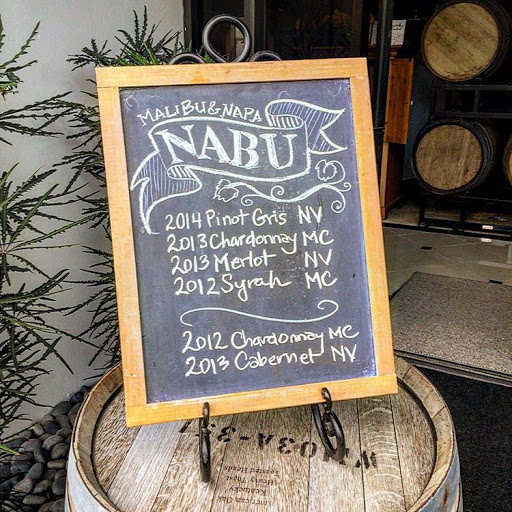 MALIBU & NAPA
NABU
2014 Pinot Gris NV
2013 Chardonnay MC
2013 Merlot NV
2012 Syrah MC
2012 Chardonnay MC
2013 Cabernet NV
American Oak
Kentucky
Toasted Heads